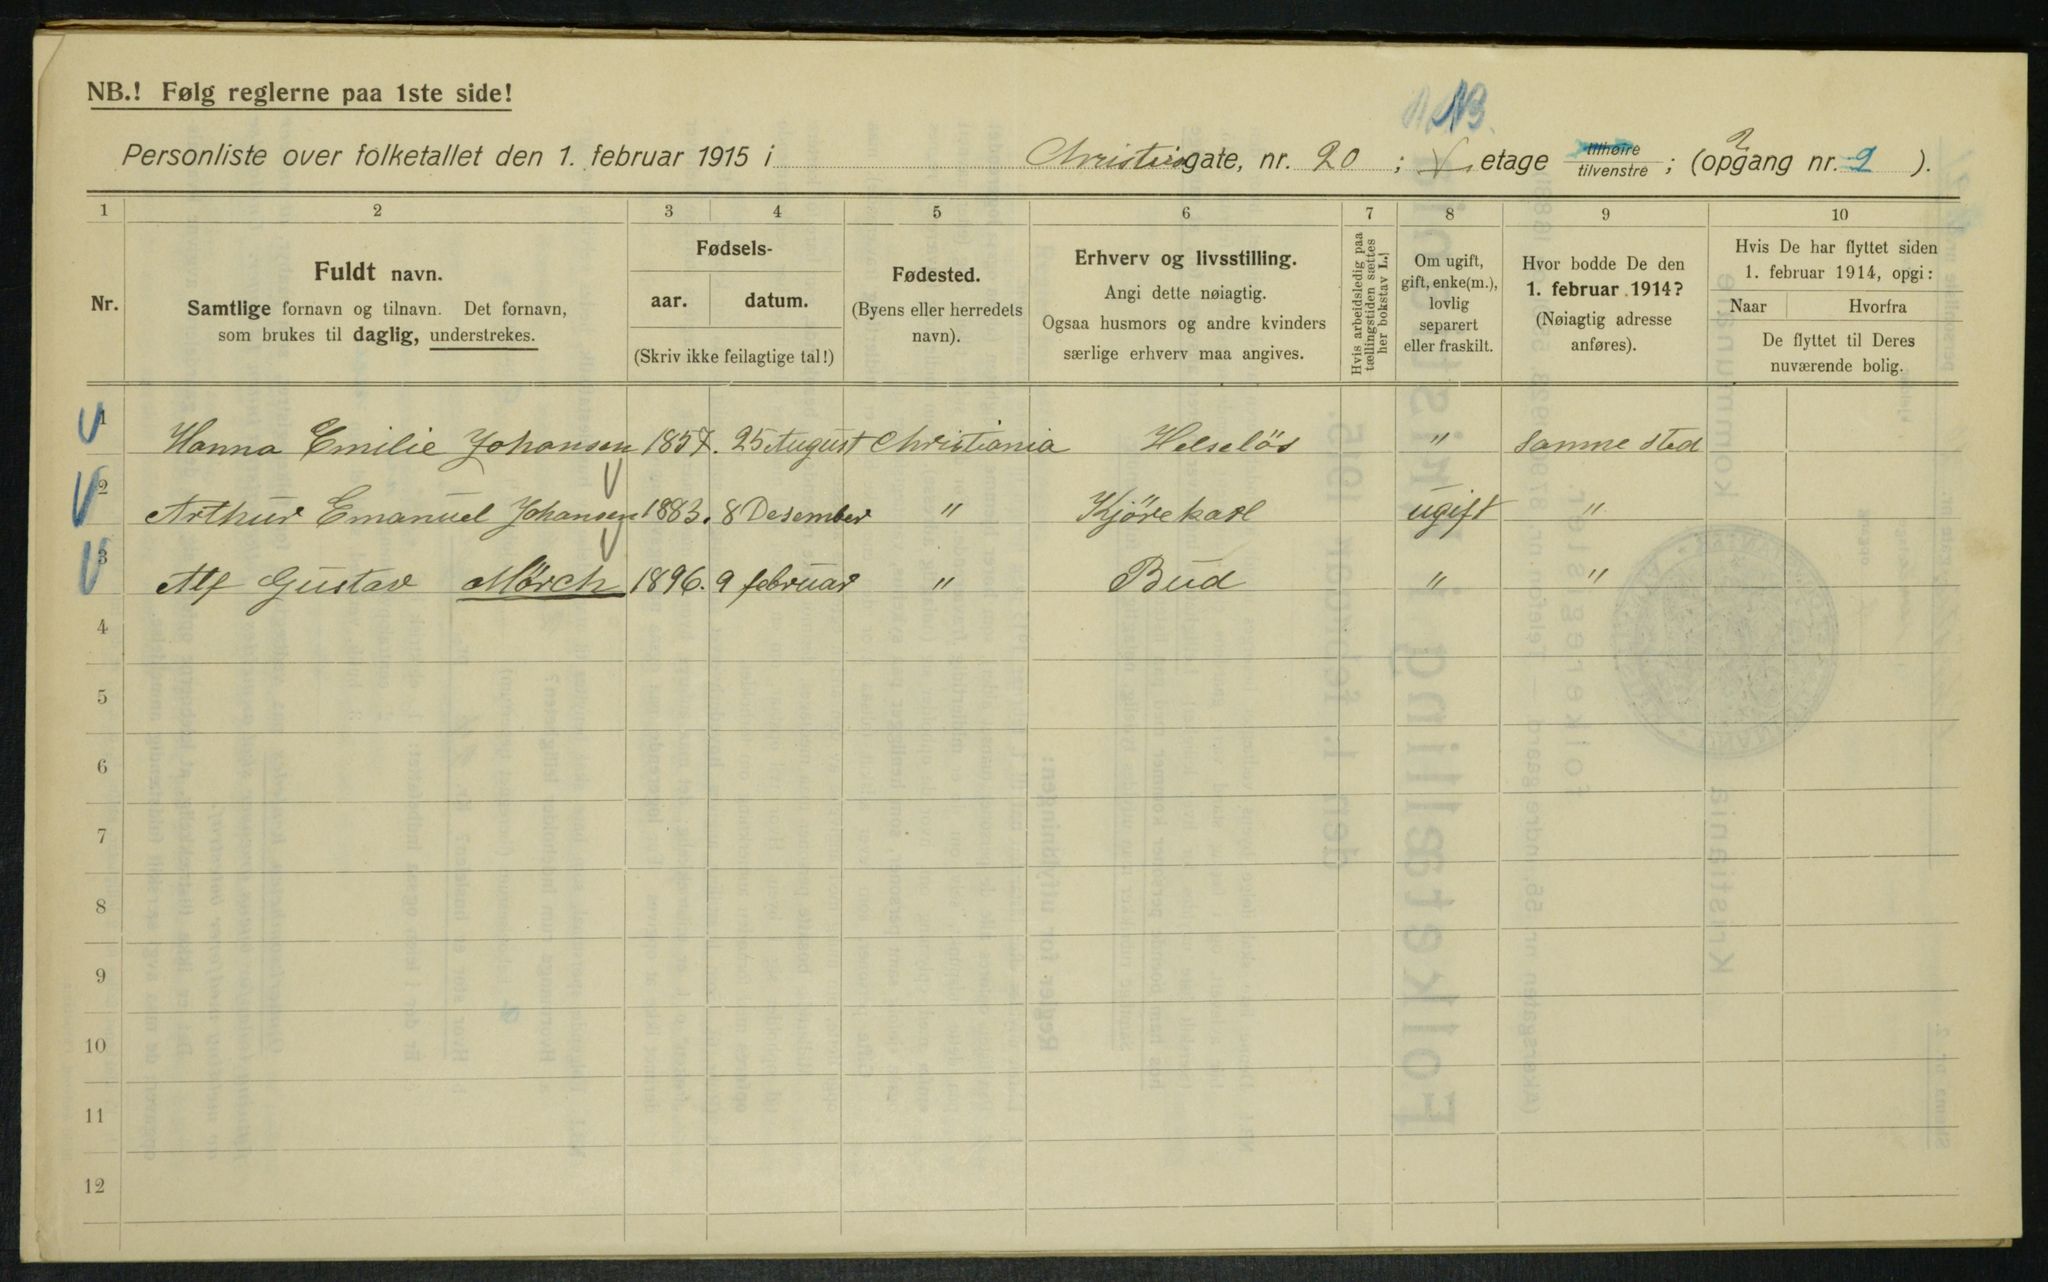 NB.! Følg reglerne paa 1ste side!
NB.
Personliste over folketallet den 1. februar 1915 i Christiesgate, nr. 20 ; etage tilhøire tilvenstre ; (opgang nr. 2 ).
1 2 3 4 5 6 7 8 9 10
Nr.
Fuldt navn.
Samtlige fornavn og tilnavn. Det fornavn,
som brukes til daglig, understrekes.
Fødsels-
aar. datum.
(Skriv ikke feilagtige tal!)
Fødested.
(Byens eller herredets
navn).
Erhverv og livsstilling.
Angi dette nøiagtig.
Ogsaa husmors og andre kvinders
særlige erhverv maa angives.
Hvis arbeidsledig paa
tællingstiden sættes
her bokstav L.!
Om ugift,
gift, enke(m.),
lovlig
separert
eller fraskilt.
Hvor bodde De den
1. februar 1914?
(Nøiagtig adresse
anføres).
Hvis De har flyttet siden
1. februar 1914, opgi:
Naar Hvorfra
De flyttet til Deres
nuværende bolig.
1 Hanna Emilie Johansen 1857. 25 August Christiania Helselös " samme sted
2 Arthur Emanuel Johansen 1883. 8 Desember " Kjörekarl ugift "
3 Alf Gustav Mörch 1896. 9 februar " Bud " "
4
5
6
7
8
9
10
11
12